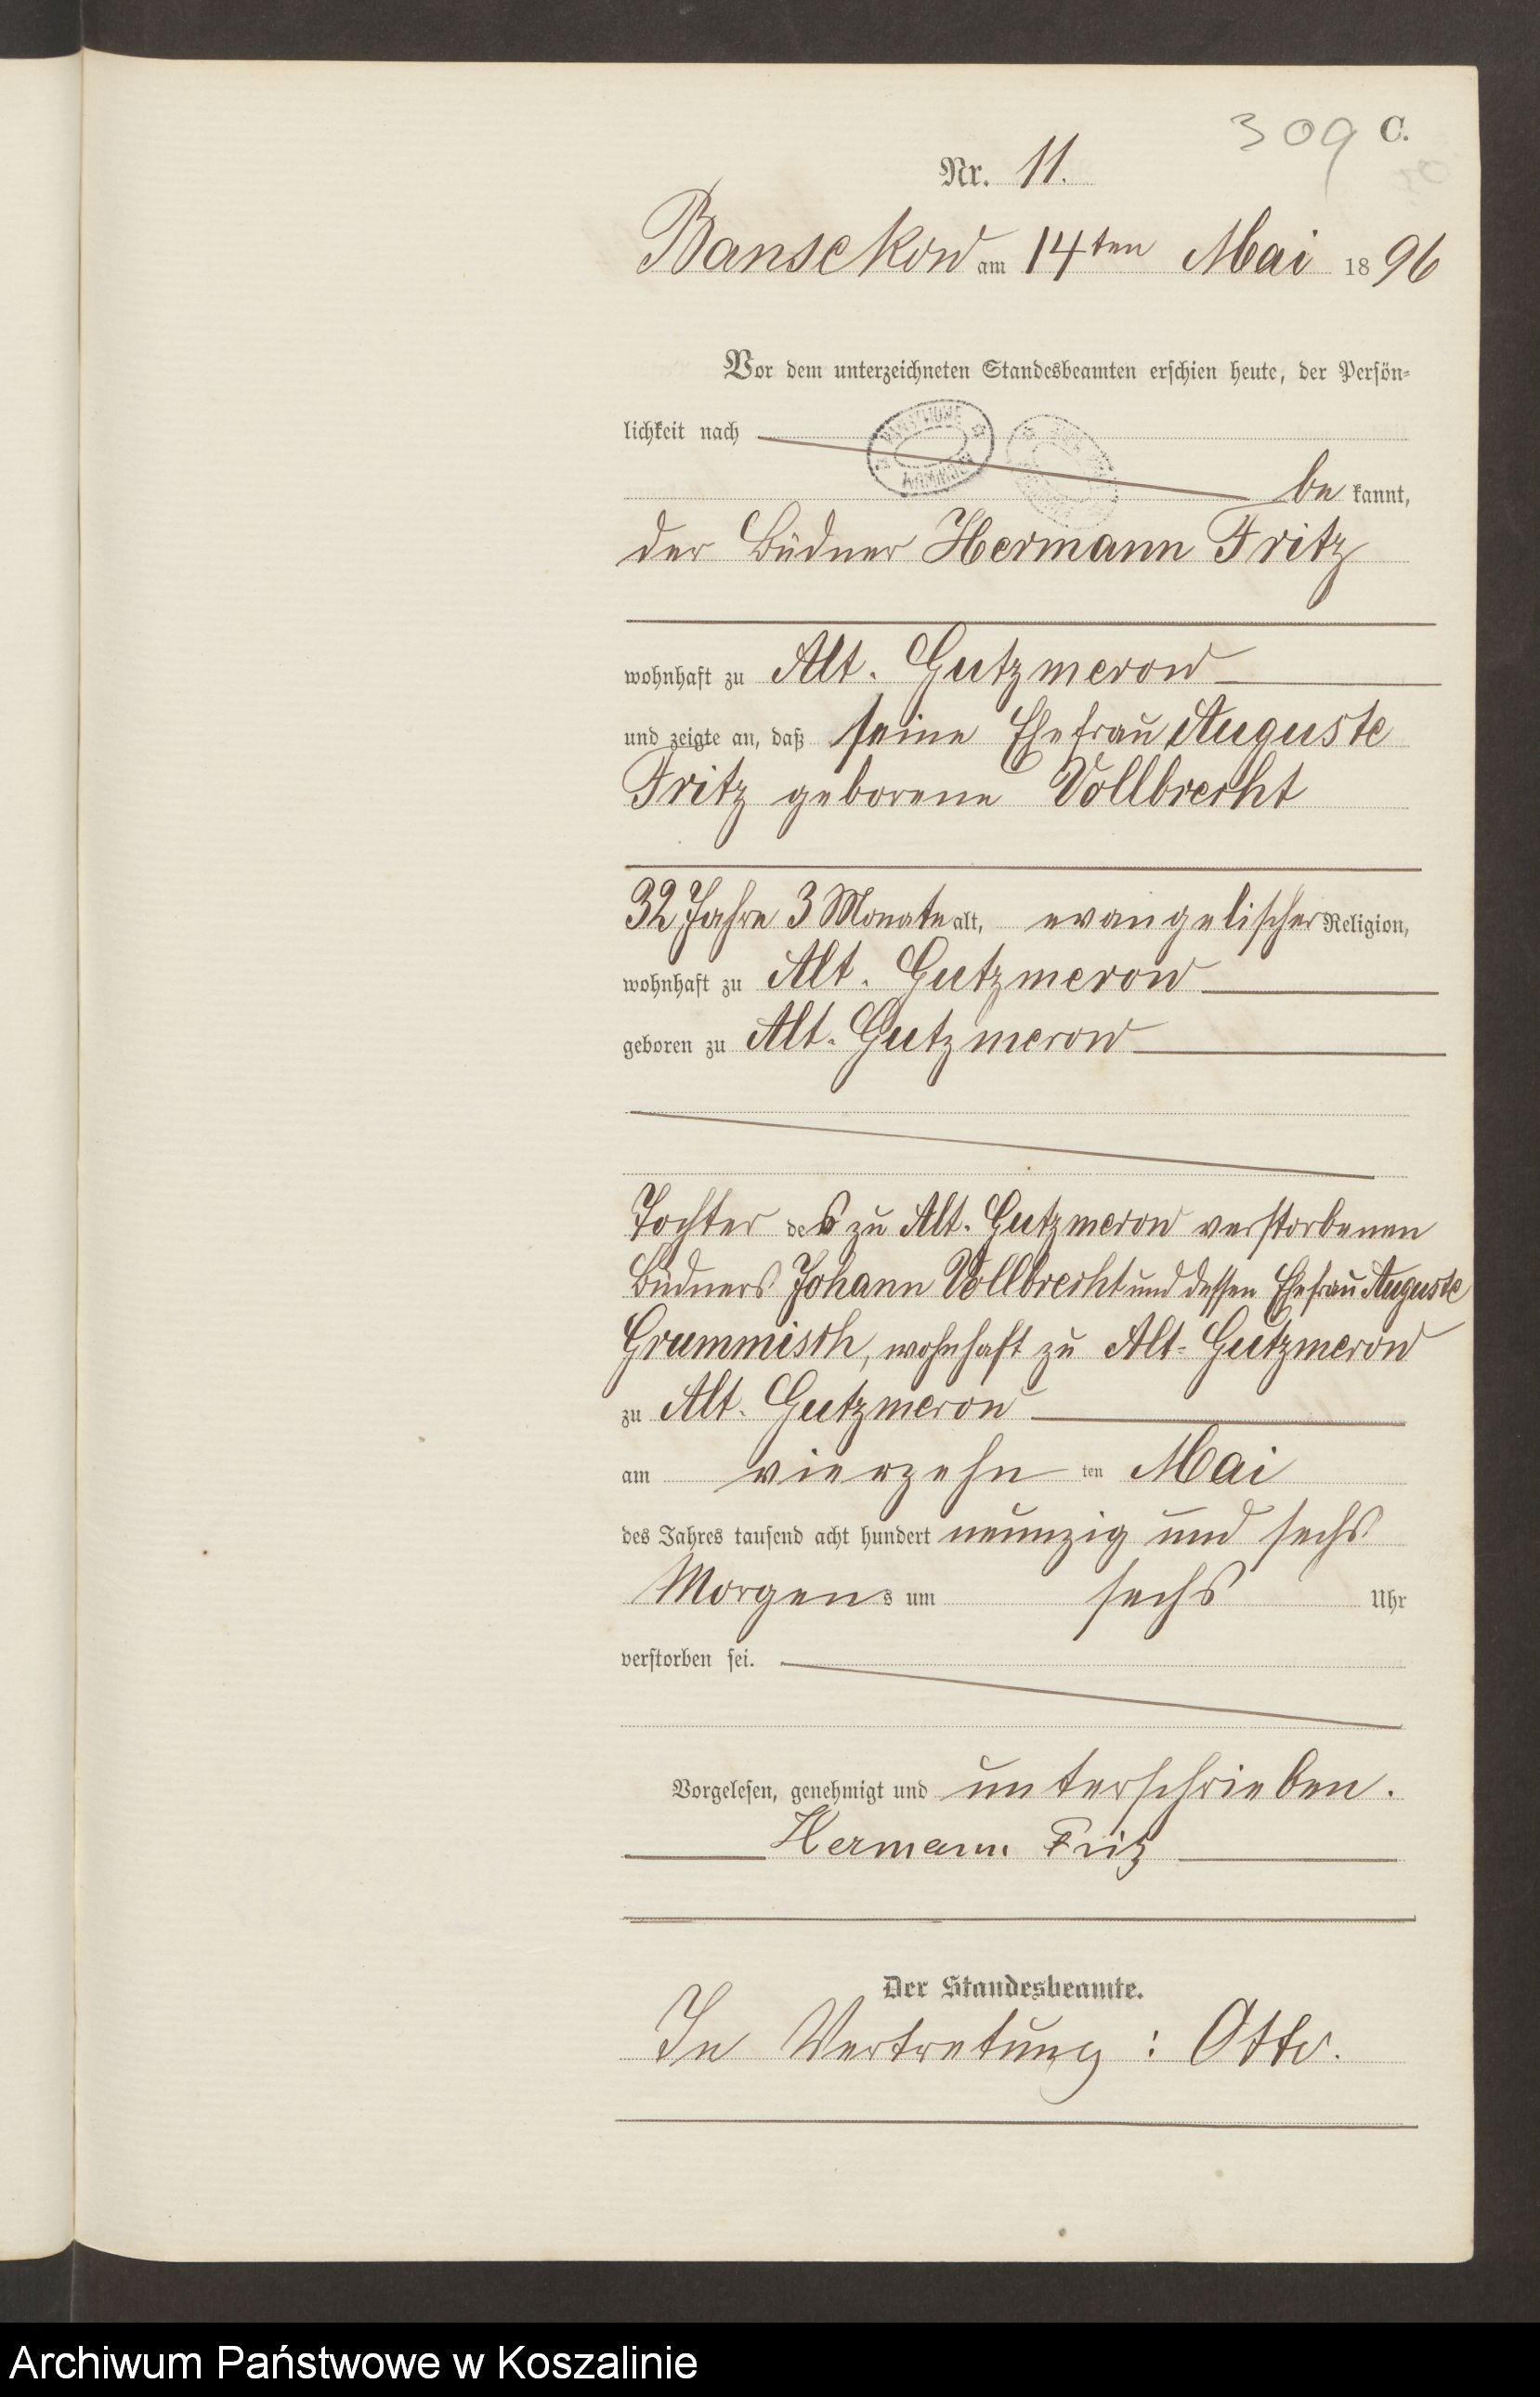 309 C.
Nr. 11.
Bansekow am 14ten Mai 1896
Vor dem unterzeichneten Standesbeamten erschien heute, der Persön-
lichkeit nach
be kannt,
der Büdner Hermann Fritz
wohnhaft zu Alt. Gutzmerow
und zeigte an, daß seine Ehefrau Auguste
Fritz geborene Vollbrecht
32 Jahre 3 Monate alt, evangelischer Religion,
wohnhaft zu Alt. Gutzmerow
geboren zu Alt. Gutzmerow
Tochter des zu Alt. Gutzmerow verstorbenen
Büdners Johann Vollbrecht und dessen Ehefrau Auguste
Grummisch, wohnhaft zu Alt-Gutzmerow
zu Alt. Gutzmerow
am vierzehn ten Mai
des Jahres tausend acht hundert neunzig und sechs
Morgens um sechs Uhr
verstorben sei.
Vorgelesen, genehmigt und unterschrieben.
Hermann Fritz
Der Standesbeamte.
In Vertretung: Otto.
Archiwum Państwowe w Koszalinie